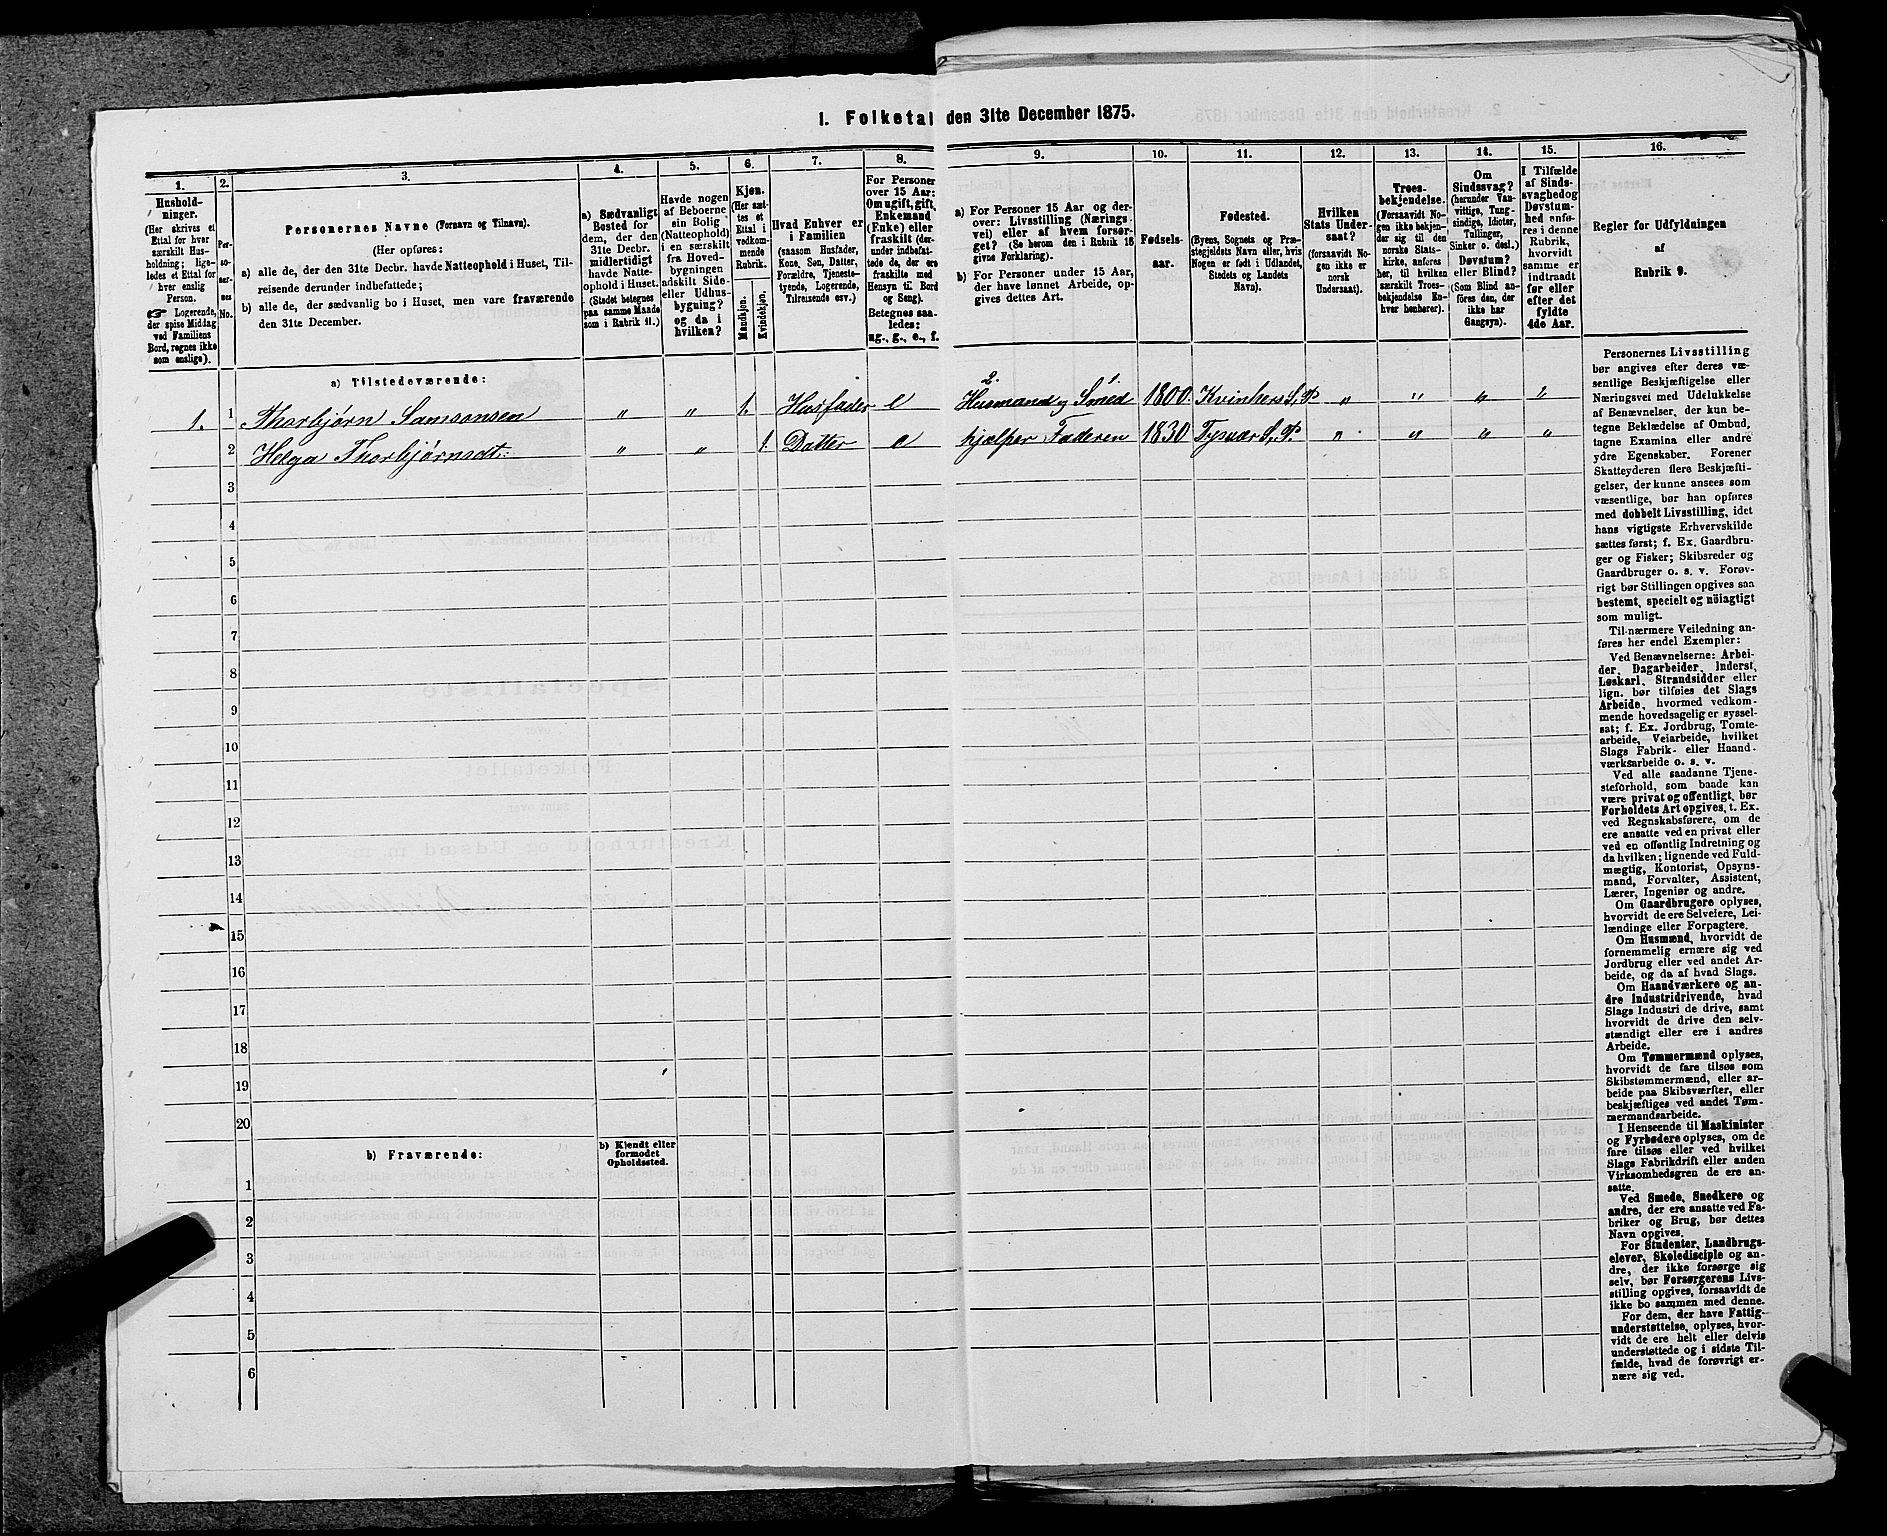 I. Folketal den 31te December 1875.
1. 2. 3. 4. 5. 6. 7. 8. 9. 10. 11. 12. 13. 14. 15. 16.
Hushold-
ninger.
(Her skrives et
Ettal for hver
særskilt Hus-
holdning; lige-
ledes et Ettal for
hver enslig
Person.
☞ Logerende,
der spise Middag
ved Familiens
Bord, regnes ikke
som enslige).
Per-
so-
ner-
nes
No.
Personernes Navne (Fornavn og Tilnavn).
(Her opføres:
a) alle de, der den 31te Decbr. havde Natteophold i Huset, Til-
reisende derunder indbefattede;
b) alle de, der sædvanlig bo i Huset, men vare fraværende
den 31te December.
a) Sædvanligt
Bosted for
dem, der den
31te Decbr.
midlertidigt
havde Natte-
ophold i Huset.
(Stedet betegnes
paa samme Maade
som i Rubrik 11.)
Havde nogen
af Beboerne
sin Bolig
(Natteophold)
i en særskilt
fra Hoved-
bygningen
adskilt Side-
eller Udhus-
bygning?
og da i
hvilken?
Kjøn.
(Her sæt-
tes et
Ettal i
vedkom-
mende
Rubrik.
Mandkjøn.
Kvindekjøn.
Hvad Enhver er
i Familien
(saasom Husfader,
Kone, Søn, Datter,
Forældre, Tjeneste-
tyende, Logerende,
Tilreisende osv.)
For Personer
over 15 Aar:
Om ugift, gift,
Enkemand
(Enke) eller
fraskilt (der-
under indbefat-
tede de, der ere
fraskilte med
Hensyn til Bord
og Seng).
Betegnes saa-
ledes:
ug., g., e., f.
a) For Personer 15 Aar og der-
over: Livsstilling (Nærings-
vei) eller af hvem forsør-
get? (Se herom den i Rubrik 16
givne Forklaring).
b) For Personer under 15 Aar,
der have lønnet Arbeide, op-
gives dettes Art.
Fødsels-
aar.
Fødested.
(Byens, Sognets og Præ-
stegjeldets Navn eller, hvis
Nogen er født i Udlandet,
Stedets og Landets
Navn).
Hvilken
Stats Under-
saat?
(forsaavidt No-
gen ikke er
norsk
Undersaat).
Troes-
bekjendelse.
(Forsaavidt No-
gen ikke bekjen-
der sig til den
norske Stats-
kirke, anføres
her, til hvilken
særskilt Troes-
bekjendelse En-
hver henhører).
Om
Sindssvag?
(herunder Van-
vittige, Tung-
sindige, Idioter,
Tullinger,
Sinker o. desl.)
Døvstum?
eller Blind? (
Som Blind an-
føres den, der
ikke har
Gangsyn).
I Tilfælde
af Sinds-
svaghed og
Døvstum-
hed anfø-
res i denne
Rubrik,
hvorvidt
samme er
indtraadt
før eller
efter det
fyldte
4de Aar.
Regler for Udfyldningen
af
Rubrik 9.
a) Tilstedeværende:
1. 1 Thorbjørn Samsonsen „ „ 1. Husfader e 2. Husmand og 1. Smed 1800 Kvinhers S. P. „ „ „ „
2 Helga Thorbjørnsdt: „ „ 1. Datter e hjælper Faderen 1830 Tysvær S. P. „ „ „ „
3
4
5
6
7
8
9
10
11
12
13
14
15
16
17
18
19
20
b) Fraværende:
b) Kjendt eller
formodet
Opholdssted.
1
2
3
4
5
6
Personernes Livsstilling
bør angives efter deres væ-
sentlige Beskjæftigelse eller
Næringsvei med Udelukkelse
af Benævnelser, der kun be-
tegne Beklædelse af Ombud,
tagne Examina eller andre
ydre Egenskaber. Forener
Skatteyderen flere Beskjæfti-
gelser, der kunne ansees som
væsentlige, bør han opføres
med dobbelt Livsstilling, idet
hans vigtigste Erhvervskilde
sættes først; f. Ex. Gaardbru-
ger og Fisker; Skibsreder og
Gaardbruger o. s. v. Forøv-
rigt bør Stillingen opgives saa
bestemt, specielt og nöiagtigt
som muligt.
Til nærmere Veiledning an-
føres her endel Exempler:
Ved Benævnelserne: Arbei-
der, Dagarbeider, Inderst,
Løskarl, Strandsidder eller
lign. bør tilføies det Slags
Arbeide, hvormed vedkom-
mende hovedsagelig er syssel-
sat; f. Ex. Jordbrug, Tomte-
arbeide, Veiarbeide, hvilket
Slags Fabrik- eller Haand-
værksarbeide o. s. v.
Ved alle saadanne Tjene-
steforhold, som baade kan
være privat og offentligt, bør
Forholdets Art opgives, t. Ex.
ved Regnskabsførere, om de
ere ansatte ved en privat eller
ved en offentlig Indretning og
da hvilken; lignende ved Fuld-
mægtig, Kontorist, Opsyns-
mand, Forvalter, Assistent,
Lærer, Ingeniør og andre.
Om Gaardbrugere oplyses,
hvorvidt de ere Selveiere, Lei-
lændinge eller Forpagtere.
Om Husmænd, hvorvidt de
fornemmelig ernære sig ved
Jordbrug eller ved andet Ar-
beide, og da af hvad Slags.
Om Haandværkere og an-
dre Industridrivende, hvad
Slags Industri de drive, samt
hvorvidt de drive den selv-
stændigt eller ere i andres
Arbeide.
Om Tømmermænd oplyses,
hvorvidt de fare tilsøs som
Skibstømmermænd, eller ar-
beide paa Skibsværfter, eller
beskjæftiges ved andet Tøm-
mermandsarbeide.
I Henseende til Maskinister
og Fyrbødere oplyses, om de
fare tilsøs eller ved hvilket
Slags Fabrikdrift eller anden
Virksomhedsgren de ere an-
satte.
Ved Smede, Snedkere og
andre, der ere ansatte ved Fa-
briker og Brug, bør dettes
Navn opgives.
For Studenter, Landbrugs-
elever, Skoledisciple og an-
dre, der ikke forsørge sig
selv, bør Forsørgerens Livs-
stilling opgives, forsaavidt de
ikke bo sammen med denne.
For dem, der have Fattig-
understøttelse, oplyses, hvor-
vidt de ere helt eller delvis
understøttede og i sidste Til-
fælde, hvad de forøvrigt er-
nære sig ved.